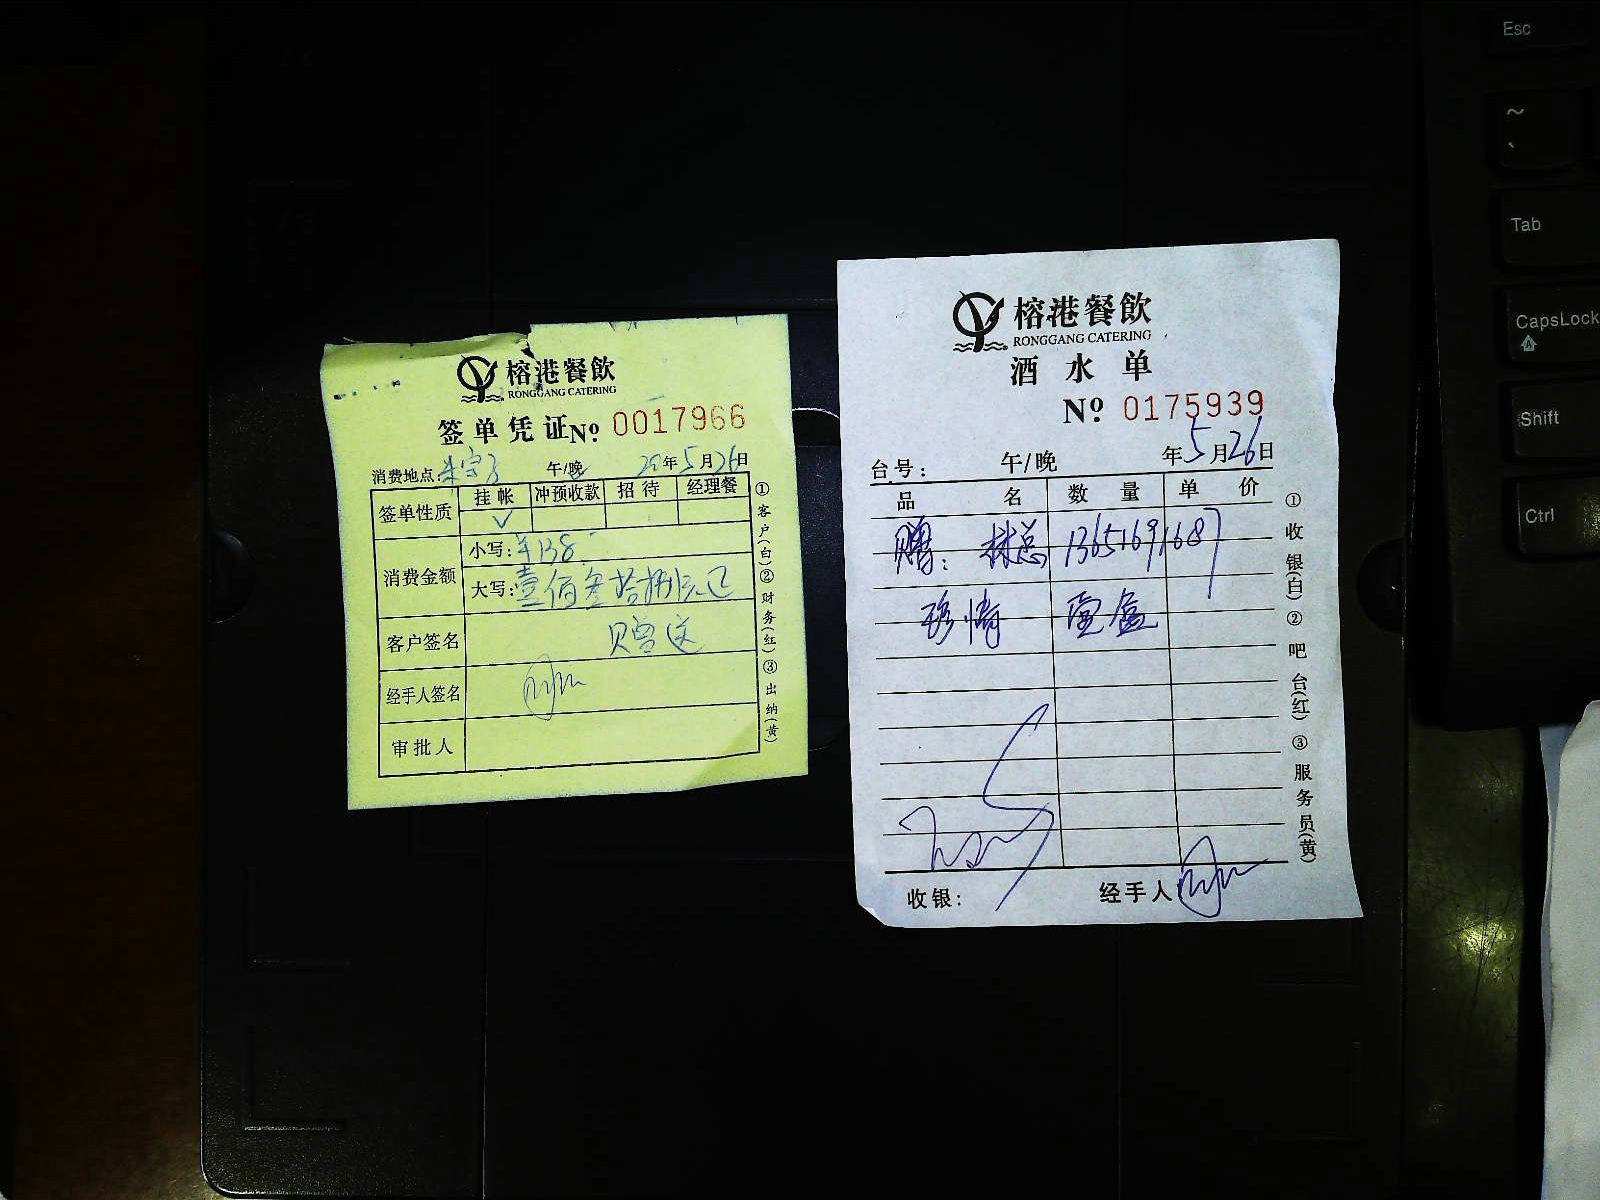 榕港餐飲
RONGGANG CATERING
签单凭证 Nº 0017966
消费地点: 午/晚 20年5月26日
签单性质 挂帐 冲预收款 招待 经理餐
✓
消费金额 小写: ¥138
大写: 壹佰叁拾捌元正
客户签名 赠送
经手人签名
审批人
①客户(白)②财务(红)③出纳(黄)
榕港餐飲
RONGGANG CATERING
酒水单
Nº 0175939
台号: 午/晚 年5月26日
品名 数量 单价
赠: 林总 13651691687
珍情 壹盒
收银: 经手人
①收银(白)②吧台(红)③服务员(黄)
Esc
~
、
Tab
CapsLock
Shift
Ctrl